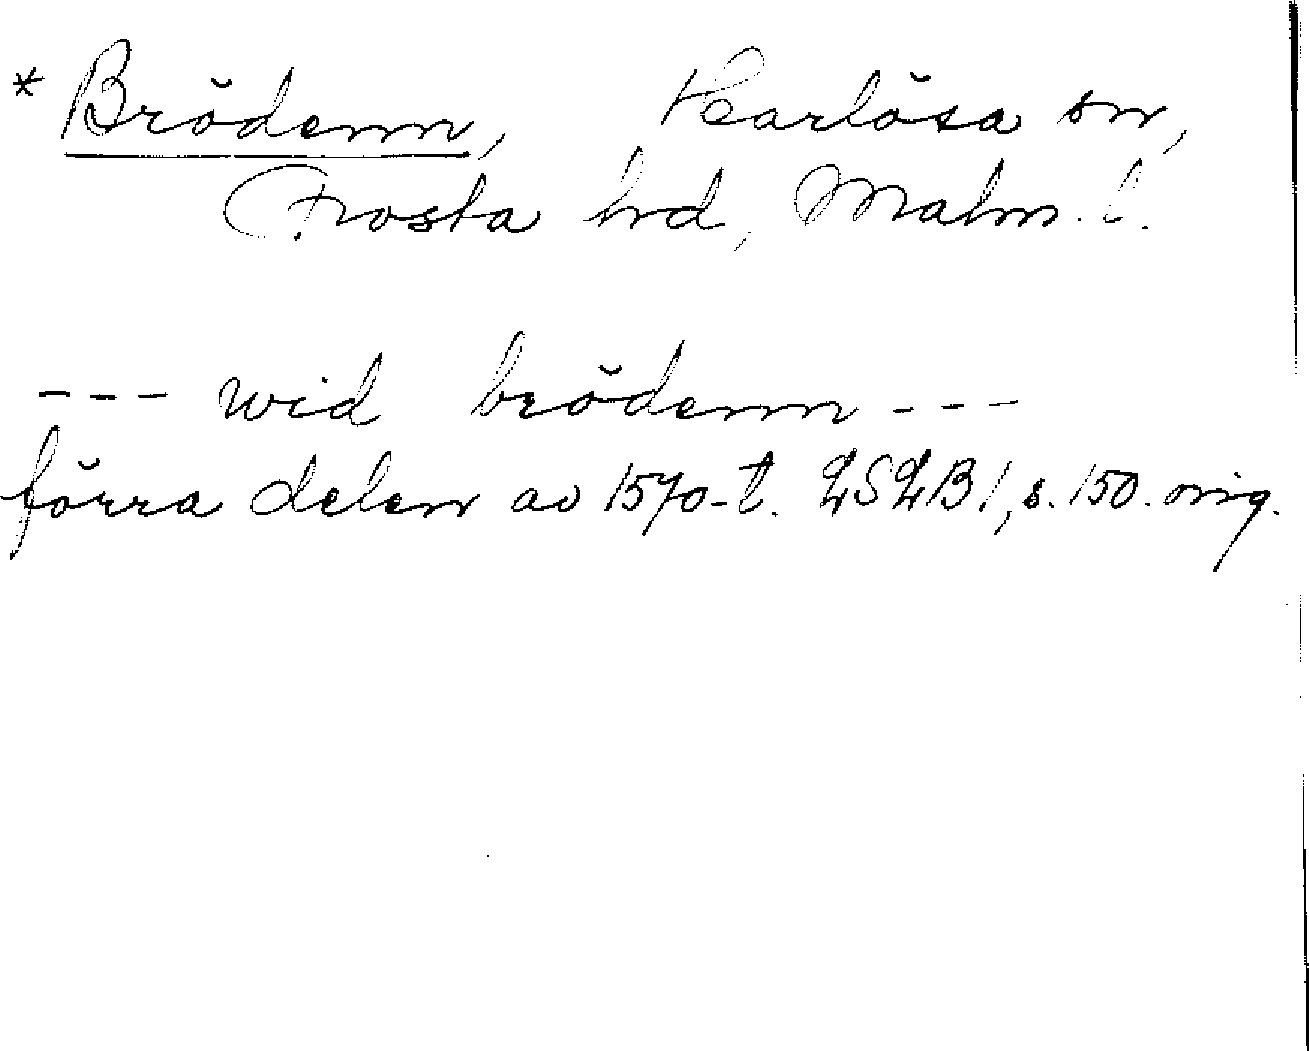 * Brödenn, Harlösa sn,
Frosta hrd, Malm. l.
--- wid brödenn ---
förra delen av 1570-t. LSLB 1, s. 150. orig.